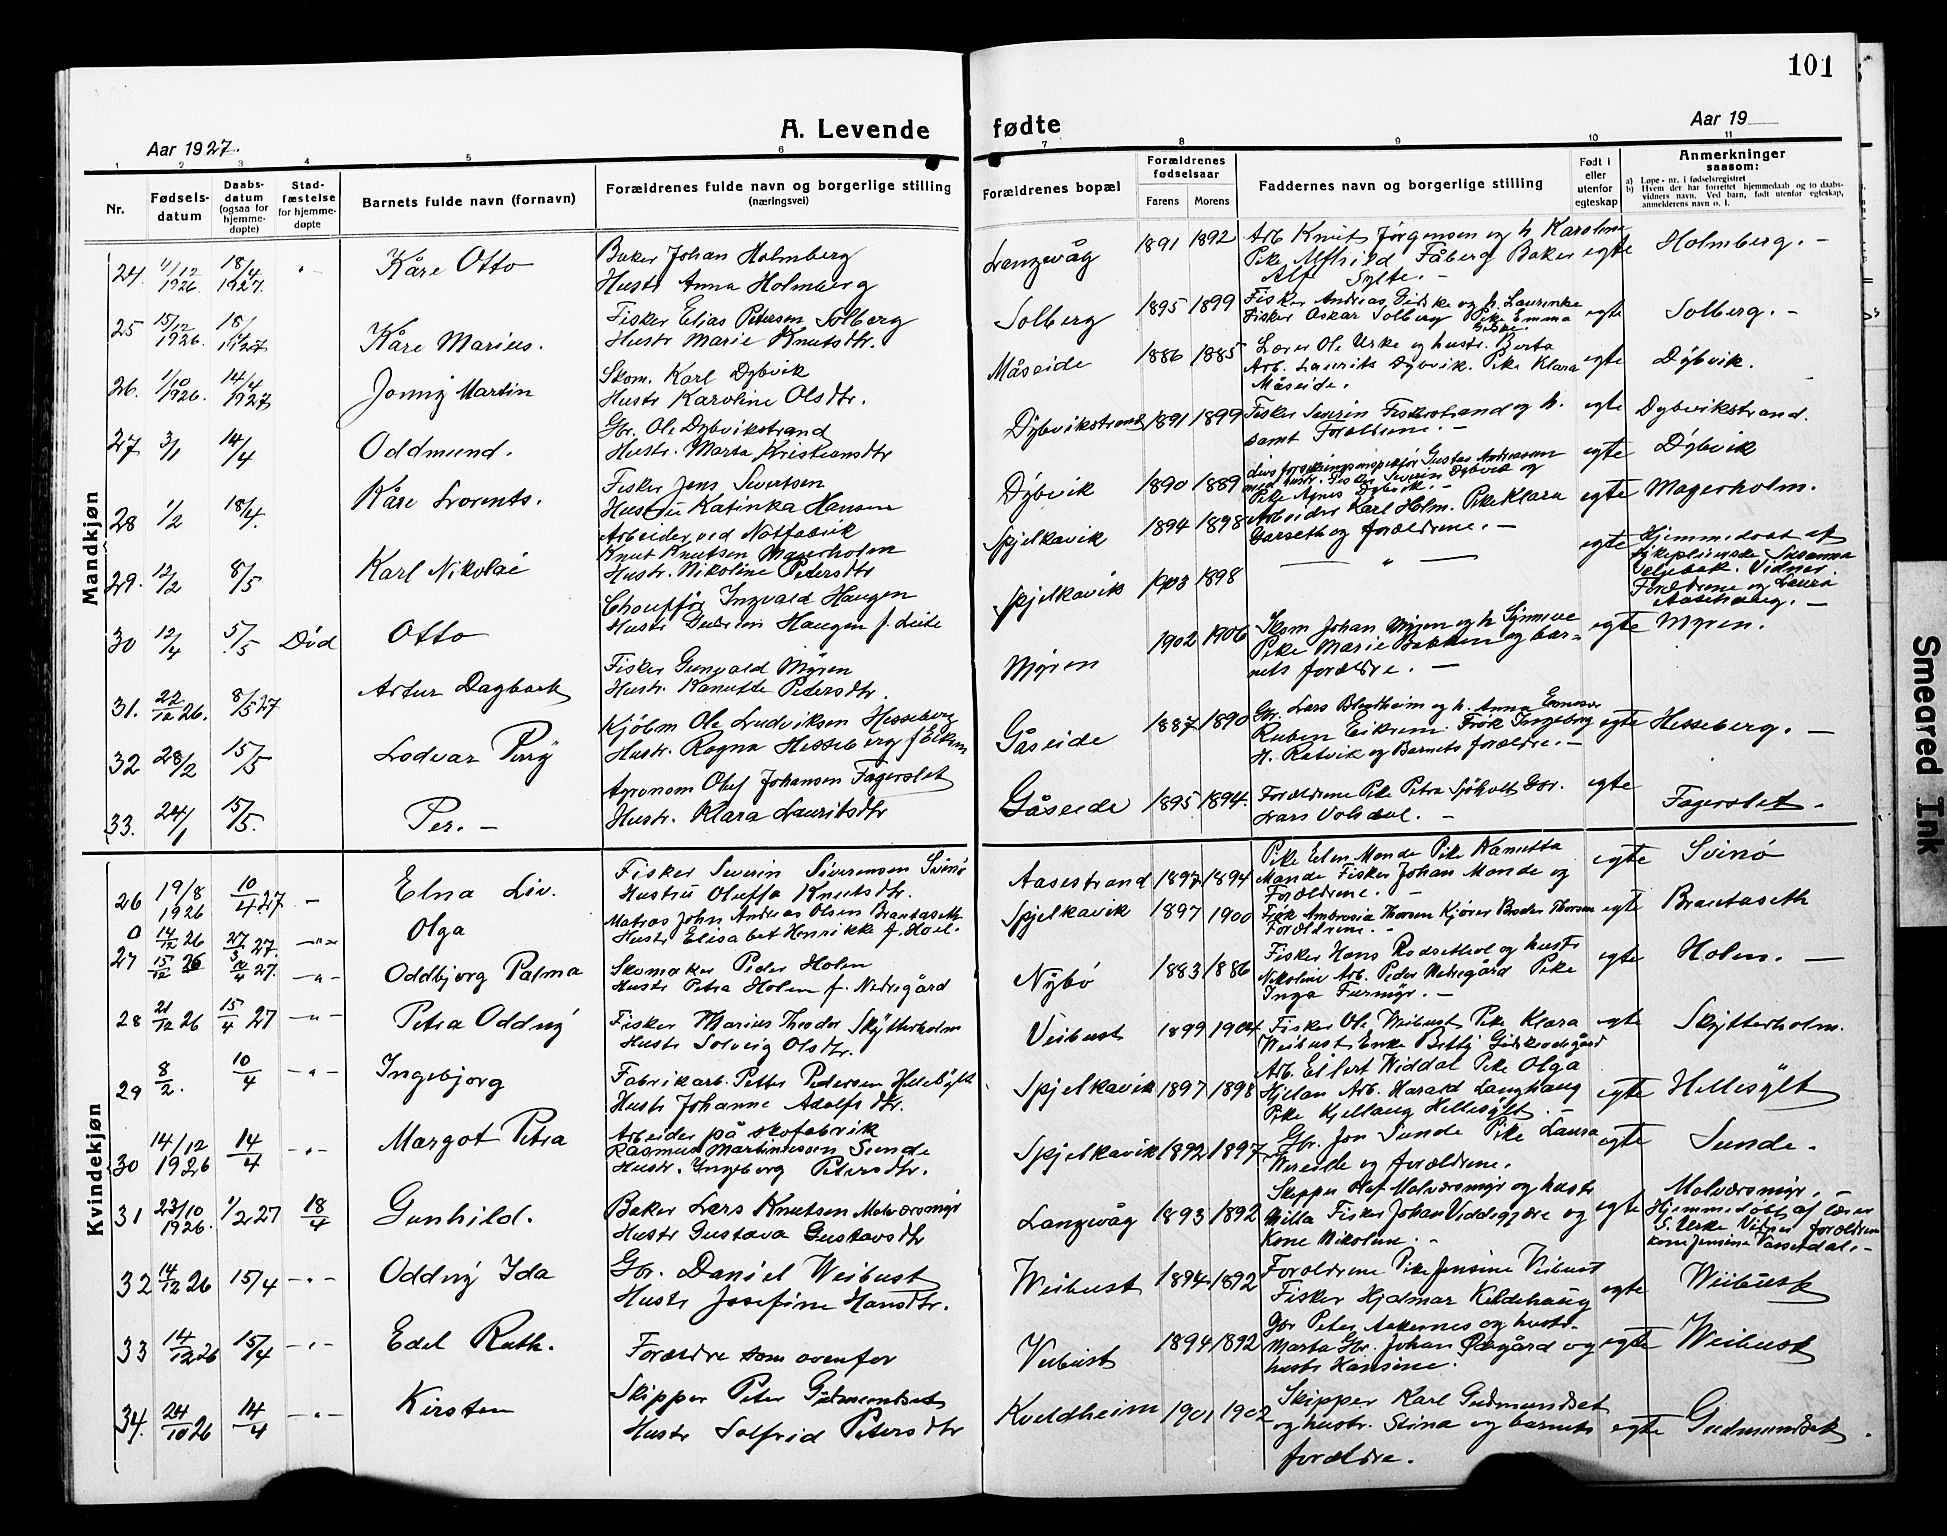 101
A. Levende fødte
Aar 1927.
Aar 19
1 2 3 4 5 6 7 8 9 10 11
Nr.
Fødsels-datum
Daabs-datum (ogsaa for hjemme-døpte)
Stad-fæstelse for hjemme-døpte
Barnets fulde navn (fornavn)
Forældrenes fulde navn og borgerlige stilling (næringsvei)
Forældrenes bopæl
Forældrenes fødselsaar
Farens Morens
Faddernes navn og borgerlige stilling
Født i eller utenfor egteskap
Anmerkninger saasom:
a) Løpe-nr. i fødselsregistret
b) Hvem der har forrettet hjemmedaab og to daabs-vidners navn. Ved barn, født utenfor egteskap, anmelderens navn o. l.
Mandkjøn
24. 1926. 18/4 1927. Kåre Otto
Baker Johan Holmberg
Hustr Anna Holmberg
Langevåg 1891 1892
Arb Knut Jørgensen og h. Karoline
Pike Alfhild Fåberg Baker
Alf Sylte. –
egte Holmberg. –
25 15/12 1926. Kåre Marius.
Fisker Elias Petersen Solberg
Hustr Marie Knutsdtr.
Solberg 1895 1899
Fisker Andreas Giske og h. Laurinke
Fisker Oskar Solberg Pike Emma
Giske.
egte Solberg. –
26. 1/10 1926. 14/4 1927 Jonny Martin
Skom. Karl Dybvik
Hustr Karoline Olsdtr.
Måseide 1886 1885
Lærer Ole Urke og hustr. Berta
Arb. Laurits Dybvik. Pike Klara
Måseide.
egte Dybvik.
27 3/1 14/4 Oddmund.
Gbr. Ole Dybvikstrand
Hustr. Marta Kristiansdtr
Dybvikstrand 1891 1899
Fisker Severin Fiskerstrand og h.
samt Forældrene. –
egte Dybvikstrand.
28 1/2 18/4. Kåre Lorents.
Fisker Jens Sivertsen
Hustru Katinka Hansen
Dybvik 1890 1889
Gustav Andreassen
med hustr. Fisker Severin Dybvik og
Pike Agnes Dybvik. –
egte Dybvik
29. 12/2 8/5 Karl Nikolai
Arbeider ved Notfabrik
Knut Knutsen Magerholm
Hustr. Nikoline Petersdtr
Spjelkavik 1894 1898
Arbeider Karl Holm. Pike Klara
Garseth og forældrene. –
egte Magerholm.
30 12/4 5/5 Død Otto
Chauffør Ingvald Haugen
Hustr Gudrun Haugen f. Leite
Spjelkavik 1903 1898
— " —
egte Hjemmedøbt af
sykepleierske Susanna
Vidner
Forældrene og Laura
31. 22/12 26. 8/5 27 Artur Dagbart
Fisker Gunvald Myren
Hustr. Kanutte Petersdtr.
Myren 1902 1906
Skom Johan Myren og h. Synnøve
Pike Marie Bakken og bar-
nets forældre. –
egte Myren.
32 28/2 15/5 Lodvar Perry
Kjøbm Ole Ludviksen Hesseberg
Hustr. Ragna Hesseberg f. Eikrem
Gåseide 1887 1890
Gbr. Lars Blindheim og h. Anna
Ruben Eikrem. Frøk Ingeborg
H. Ratvik og Barnets forældre. –
egte Hesseberg. –
33. 24/1 15/5. Per. –
Agronom Oluf Johansen Fagerslet
Hustr. Klara Lauritsdtr
Gåseide 1895 1894.
Forældrene Pike Petra Sjøholt Gbr.
Lars Volsdal. –
egte Fagerslet.
Kvindekjøn
26 19/8 1926 10/4 27 – Elna Liv.
Fisker Severin Siversen Svinø
Hustru Oluffa Knutsdtr.
Aasestrand 1897 1894
Pike Elen Mande Pike Kanutta
Mande Fisker Johan Mande og
Forældrene. –
egte Svinø
0 14/12 26 27/3 27. –"– Olga
Matros John Andreas Olsen Brautaseth
Hustr Elisabet Henrikke f. Hoel.
Spjelkavik 1897 1900
Frøk Ambrosia Thorsen Kjører Broder Thorsen
Forældrene. –
egte Brautaseth
27 15/12 26 10/4 27. –"– Oddbjørg Palma
Skomaker Peder Holm
Hustr Petra Holm f. Nedregård
Nybø 1883 1886
Fisker Hans Rødsethol og hustr
Nikoline Arb. Peder Nedregård Pike
Inga Furmyr. –
egte Holm. –
28 21/12 26 15/4 27 –"– Petra Oddny
Fisker Marius Theodor Skytterholm
Hustr Solveig Olsdtr.
Veibust 1899 1904.
Fisker Ole Weibust Pike Klara
Weibust Enke Betty
egte Skytterholm.
29 8/2. 10/4 –"– Ingebjørg
Fabrikarb. Petter Pedersen Hellesylt
Hustr Johanne Adolfsdtr.
Spjelkavik 1897 1898
Arb. Eilert Widdal Pike Olga
Hjelan Arb. Harald Langhaug
Pike Kjellaug Hellesylt. –
egte Hellesylt
30 14/12 1926 14/4 –"– Margot Petra
Arbeider på skofabrik
Rasmus Martinussen Sunde
Hustr. Ingeborg Petersdtr.
Spjelkavik 1892 1897
Gbr. Jon Sunde Pike Laura
og forældrene.
egte Sunde.
31 23/10 1926. 1/2 27 18/4 Gunhild.
Baker Lars Knutsen Molværsmyr
Hustr Gustava Gustavsdtr
Langevåg 1893 1892
Skipper Olaf Molværsmyr og hustr
Milla Fisker Johan og
Kone Nikoline. –
egte Molværsmyr. –
Hjemmedøbt af lærer
S. Urke Vidner forældrene
kone Jensine Vasserdal. –
32 14/12 26 15/4 –"– Oddny Ida
Gbr. Daniel Weibust
Hustr Josefine Hansdtr.
Weibust 1894 1892
Forældrene Pike Jensine Veibust
Fisker Hjalmar Kildehaug
egte Weibust
33 14/12 26 15/4 –"– Edel Ruth.
Forældre som ovenfor
Veibust 1894 1892
Gbr Peter Aakernes og hustr.
Marta Gbr. Johan Ødegård og
hustr Hansine.
egte Weibust
34. 24/10 26 14/4 –"– Kirsten
Skipper Peter Gudmundset
Hustr Solfrid Petersdtr
Kveldheim 1901 1902
Skipper Karl Gudmundset
og hustr. Stina og barnets
forældre.
egte Gudmundset.
Smeared Ink